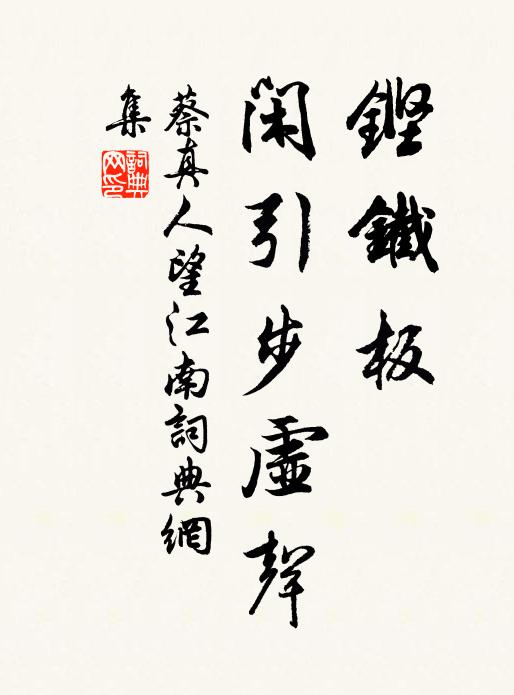 鏗鐵板
閑引步虛聲
蔡真人望江南詞典網
集
詞典
网印